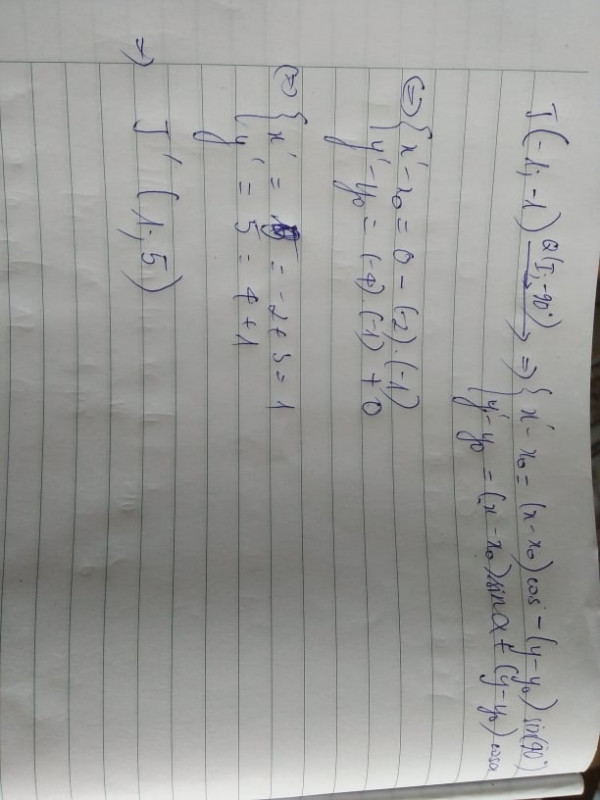 J(-1; -1) Q(I; -90°) → => { x' - x₀ = (x - x₀) cos - (y - y₀) sin(90°)
{ y' - y₀ = (x - x₀) sin α + (y - y₀) cos α
(=) { x' - x₀ = 0 - (-2).(-1)
{ y' - y₀ = (-4).(-1) + 0
(=) { x' = = -2 + 3 = 1
{ y' = 5 = 4 + 1
y
=> J' (1; 5)